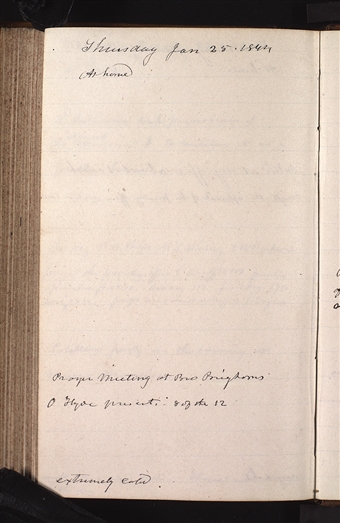 Thursday Jan 25. 1844
At home
Prayer Meeting at Bro Brighams
O Hyde present. 8 of the 12
extremely cold.